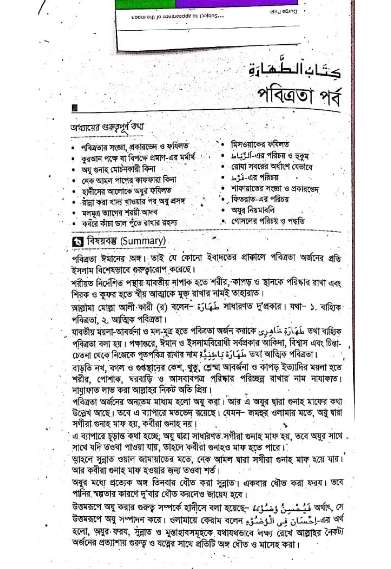 ...Subject to appearance of the moon
كتاب الطهارة
পবিত্রতা পর্ব
অধ্যায়ের গুরুত্বপূর্ণ কথা
• পবিত্রতার সংজ্ঞা, প্রকারভেদ ও ফযিলত
• কুরআন পক্ষে বা বিপক্ষে প্রমাণ-এর মর্মার্থ
• অযু গুনাহ মোচনকারী কিনা
• নেক আমল পাপের কাফফারা কিনা
• হাদীসের আলোকে অযুর ফযিলত
• রান্না করা খাদ্য খাওয়ার পর অযু প্রসঙ্গ
• মলমূত্র ত্যাগের শরয়ী আদব
• কবরে কাঁচা ডাল পুঁতে রাখার রহস্য
• মিসওয়াকের ফযিলত
• الرباط-এর পরিচয় ও হুকুম
• রোযা সবরের অর্ধাংশ যেভাবে
• -এর পরিচয়
• শাফায়াতের সংজ্ঞা ও প্রকারভেদ
• ফিতরাত-এর পরিচয়
• অযুর নিয়মাবলি
• গোসলের পরিচয় ও পদ্ধতি
বিষয়বস্তু (Summary)
পবিত্রতা ঈমানের অঙ্গ। তাই যে কোনো ইবাদতের প্রাক্কালে পবিত্রতা অর্জনের প্রতি
ইসলাম বিশেষভাবে গুরুত্বারোপ করেছে।
শরীয়ত নির্দেশিত পন্থায় যাবতীয় নাপাক হতে শরীর, কাপড় ও স্থানকে পরিষ্কার রাখা এবং
শিরক ও কুফর হতে স্বীয় আত্মাকে মুক্ত রাখার নামই তাহারাত।
আল্লামা মোল্লা আলী কারী (র) বলেন- طهارة সাধারণত দু'প্রকার। যথা- ১. বাহ্যিক
পবিত্রতা, ২. আত্মিক পবিত্রতা।
যাবতীয় ময়লা-আবর্জনা ও মল-মূত্র হতে পবিত্রতা অর্জন করাকে طهارة ظاهري তথা বাহ্যিক
পবিত্রতা বলা হয়। পক্ষান্তরে, ঈমান ও ইসলামবিরোধী সর্বপ্রকার আকিদা, বিশ্বাস এবং চিন্তা-
চেতনা থেকে নিজেকে পূতপবিত্র রাখার নাম طهارة باطنية তথা আত্মিক পবিত্রতা।
বাড়তি নখ, বগল ও গুপ্তস্থানের কেশ, থুথু, শ্লেষ্মা আবর্জনা ও কাপড় ইত্যাদির ময়লা হতে
শরীর, পোশাক, ঘরবাড়ি ও আসবাবপত্র পরিষ্কার পরিচ্ছন্ন রাখার নাম নাযাফাত।
নাযাফাত লাভ করা আল্লাহর নিকট অতি প্রিয়।
পবিত্রতা অর্জনের অন্যতম মাধ্যম হলো অযু করা। আর এ অযুর দ্বারা গুনাহ মাফের কথা
উল্লেখ আছে। তবে এ ব্যাপারে মতভেদ রয়েছে। যেমন- জমহুর ওলামার মতে, অযু দ্বারা
সগীরা গুনাহ মাফ হয়, কবীরা গুনাহ নয়।
এ ব্যাপারে চূড়ান্ত কথা হচ্ছে; অযু দ্বারা সাধারণত সগীরা গুনাহ মাফ হয়, তবে অযুর সাথে
সাথে যদি তওবা পাওয়া যায়, তাহলে কবীরা গুনাহও মাফ হতে পারে।
আহলে সুন্নাত ওয়াল জামায়াতের মতে, নেক আমল দ্বারা সগীরা গুনাহ মাফ হয়ে যায়।
আর কবীরা গুনাহ মাফ হওয়ার জন্য তওবা শর্ত।
অযুর মধ্যে প্রত্যেক অঙ্গ তিনবার ধৌত করা সুন্নাত। একবার ধৌত করা ফরয। তবে
পানির স্বল্পতার কারণে দু'বার ধৌত করলেও জায়েয হবে।
উত্তমরূপে অযু করার গুরুত্ব সম্পর্কে হাদীসে বলা হয়েছে- فيحسن وضوءه অর্থাৎ, সে
উত্তমরূপে অযু সম্পাদন করে। ওলামায়ে কেরাম বলেন إحسان في الوضوء-এর অর্থ
হলো, অযুর ফরয, সুন্নাত ও মুস্তাহাবসমূহকে যথাযথভাবে লক্ষ্য রেখে আল্লাহর নৈকট্য
অর্জনের প্রত্যাশায় গুরুত্ব ও যত্নের সাথে প্রতিটি অঙ্গ ধৌত ও মাসেহ করা।